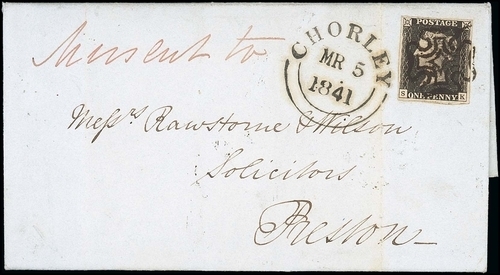 Missent to
CHORLEY
MR 5
1841
POSTAGE
S ONE PENNY K
Messrs Rawstorne & Wilson
Solicitors
Preston